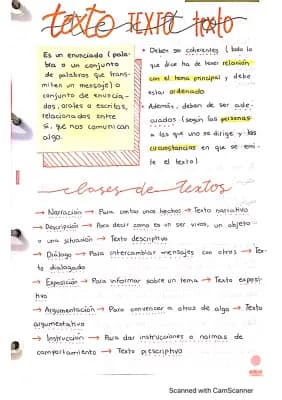 texto TEXTO texto
Es un enunciado (pala-
bra o un conjunto
de palabras que trans-
miten un mensaje) o
conjunto de enuncia-
dos, orales o escritos,
relacionados entre
sí, que nos comunican
algo.
• Deben ser coherentes (todo lo
que dice ha de tener relación
con el tema principal y debe
estar ordenado
• Además, deben de ser ade-
cuados (según las personas
a las que uno se dirige y las
circunstancias en que se emi-
te el texto).
clases de textos
→ Narración → Para contar unos hechos → Texto narrativo
→ Descripción → Para decir como es un ser vivos, un objeto
o una situación → Texto descriptivo
→ Diálogo → Para intercambiar mensajes con otros → Tex-
to dialogado
→ Exposición → Para informar sobre un tema → Texto exposi-
tivo
→ Argumentación → Para convencer a otros de algo → Texto
argumentativo
→ Instrucción → Para dar instrucciones o normas de
comportamiento → Texto prescriptivo
Scanned with CamScanner